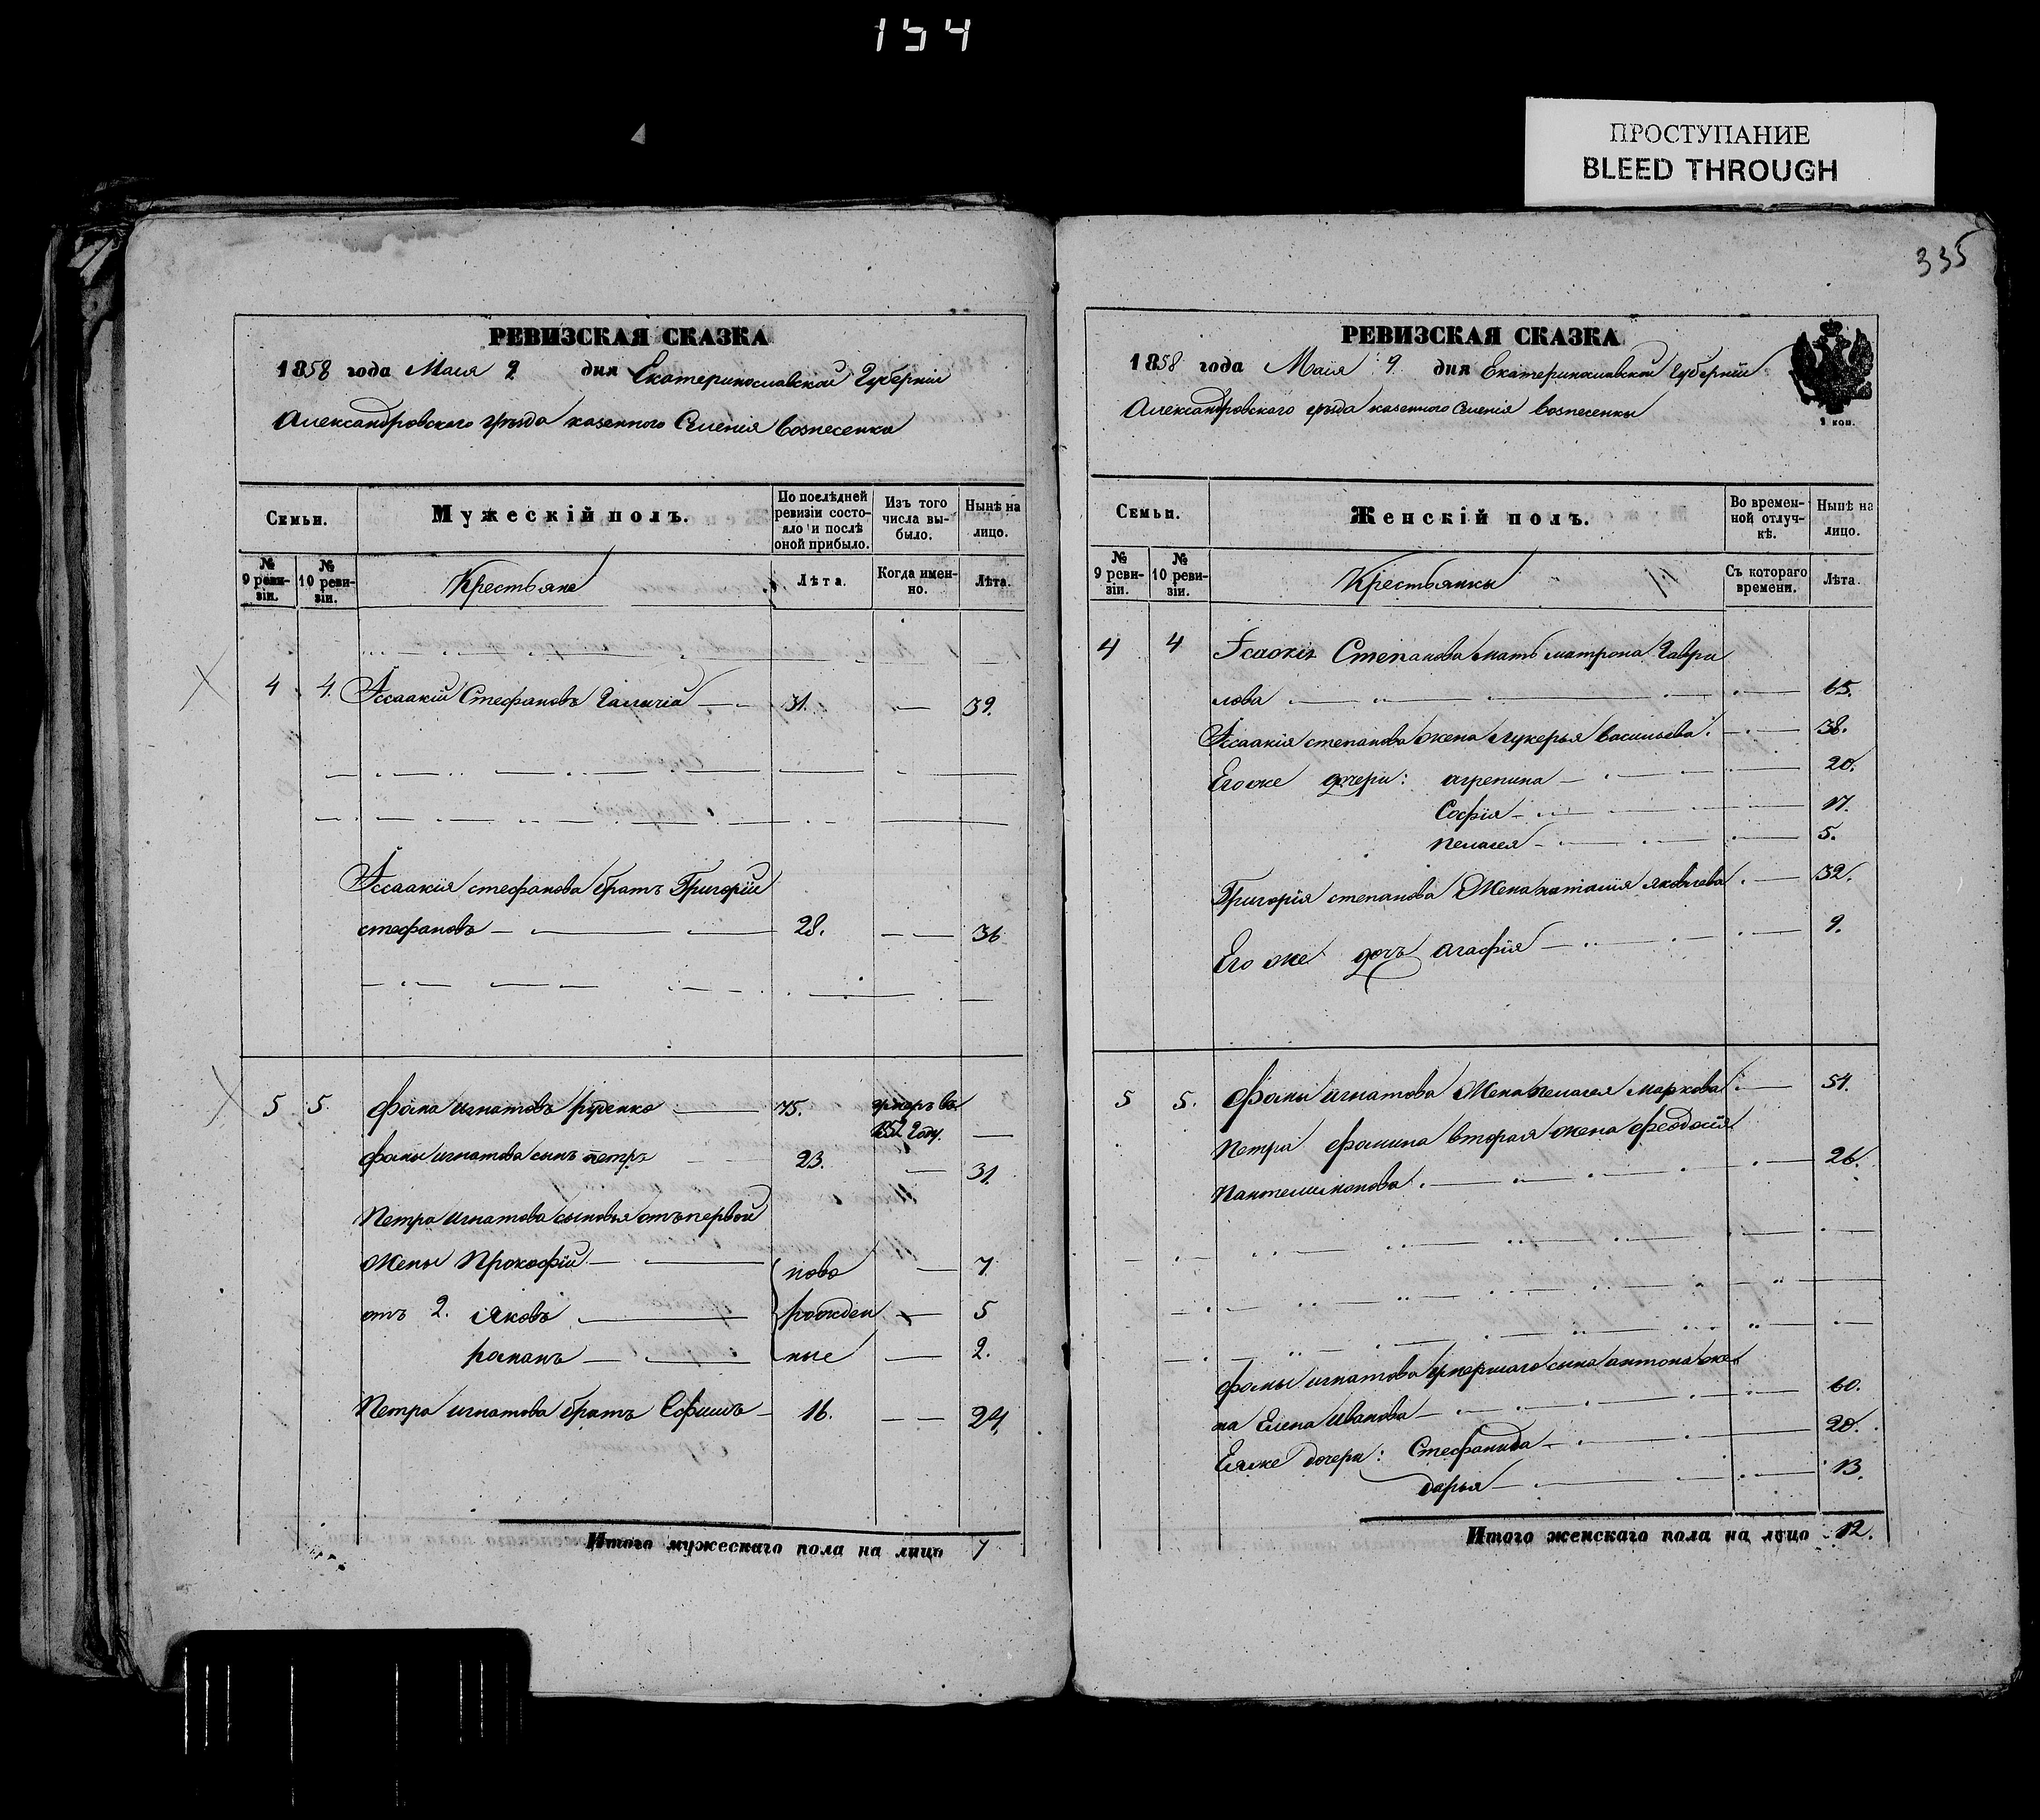 154
ПРОСТУПАНИЕ
BLEED THROUGH
335
РЕВИЗСКАЯ СКАЗКА
1858 года Мая 9 дня Екатеринославской Губерніи
Александровскаго уѣзда казеннаго Селенія Вознесенка
Семьи.
Мужескій полъ.
По послѣдней ревизіи состо-
яло и послѣ оной прибыло.
Изъ того числа вы-
было.
Нынѣ на лицо.
№ 9 реви-
зіи.
№ 10 реви-
зіи.
Крестьяне
Лѣта.
Когда имен-
но.
Лѣта.
4 4. Ӏссаакій Стефановъ 31. 39.
Ӏссаакія стефанова братъ Григорій
стефановъ 28. 36
5 5. Фома игнатовъ руденко 75. умеръ въ
185 году.
Фомы игнатова сынъ петръ 23. 31.
Петра игнатова сыновья отъ первой
жены Прокофій ново 7
отъ 2. Яковъ рожден 5
романъ ные 2.
Петра игнатова братъ Ефимъ 16. 24.
Итого мужескаго пола на лицо 7
РЕВИЗСКАЯ СКАЗКА
1858 года Маія 9 дня Екатеринославской Губерніи
Александровскаго уѣзда казенного Селенія Вознесенки
1 коп.
Семьи.
Женскій полъ.
Во времен-
ной отлуч-
кѣ.
Нынѣ на лицо.
№ 9 реви-
зіи.
№ 10 реви-
зіи.
Крестьянки
Съ котораго времени.
Лѣта.
4 4 Ісаокія Степанова мать матрона Гаври
лова 65.
Ӏссаакія степанова жена лукерья васильева. 38.
Егоже дочери: агрепина 20.
Софія 17.
пелагея 5.
Григорія степанова Жена наталия яковлева 32.
Его же дочь агафія 9.
5 5. Фомы игнатова Жена пелагея маркова 51.
Петра фомина вторая жена феодосія
Пантелимонова 26.
Фомы игнатова умершаго сына антона же
на Елена иванова 60.
Еяже дочери: Стефанида 20.
дарья 13.
Итого женскаго пола на лицо 12.